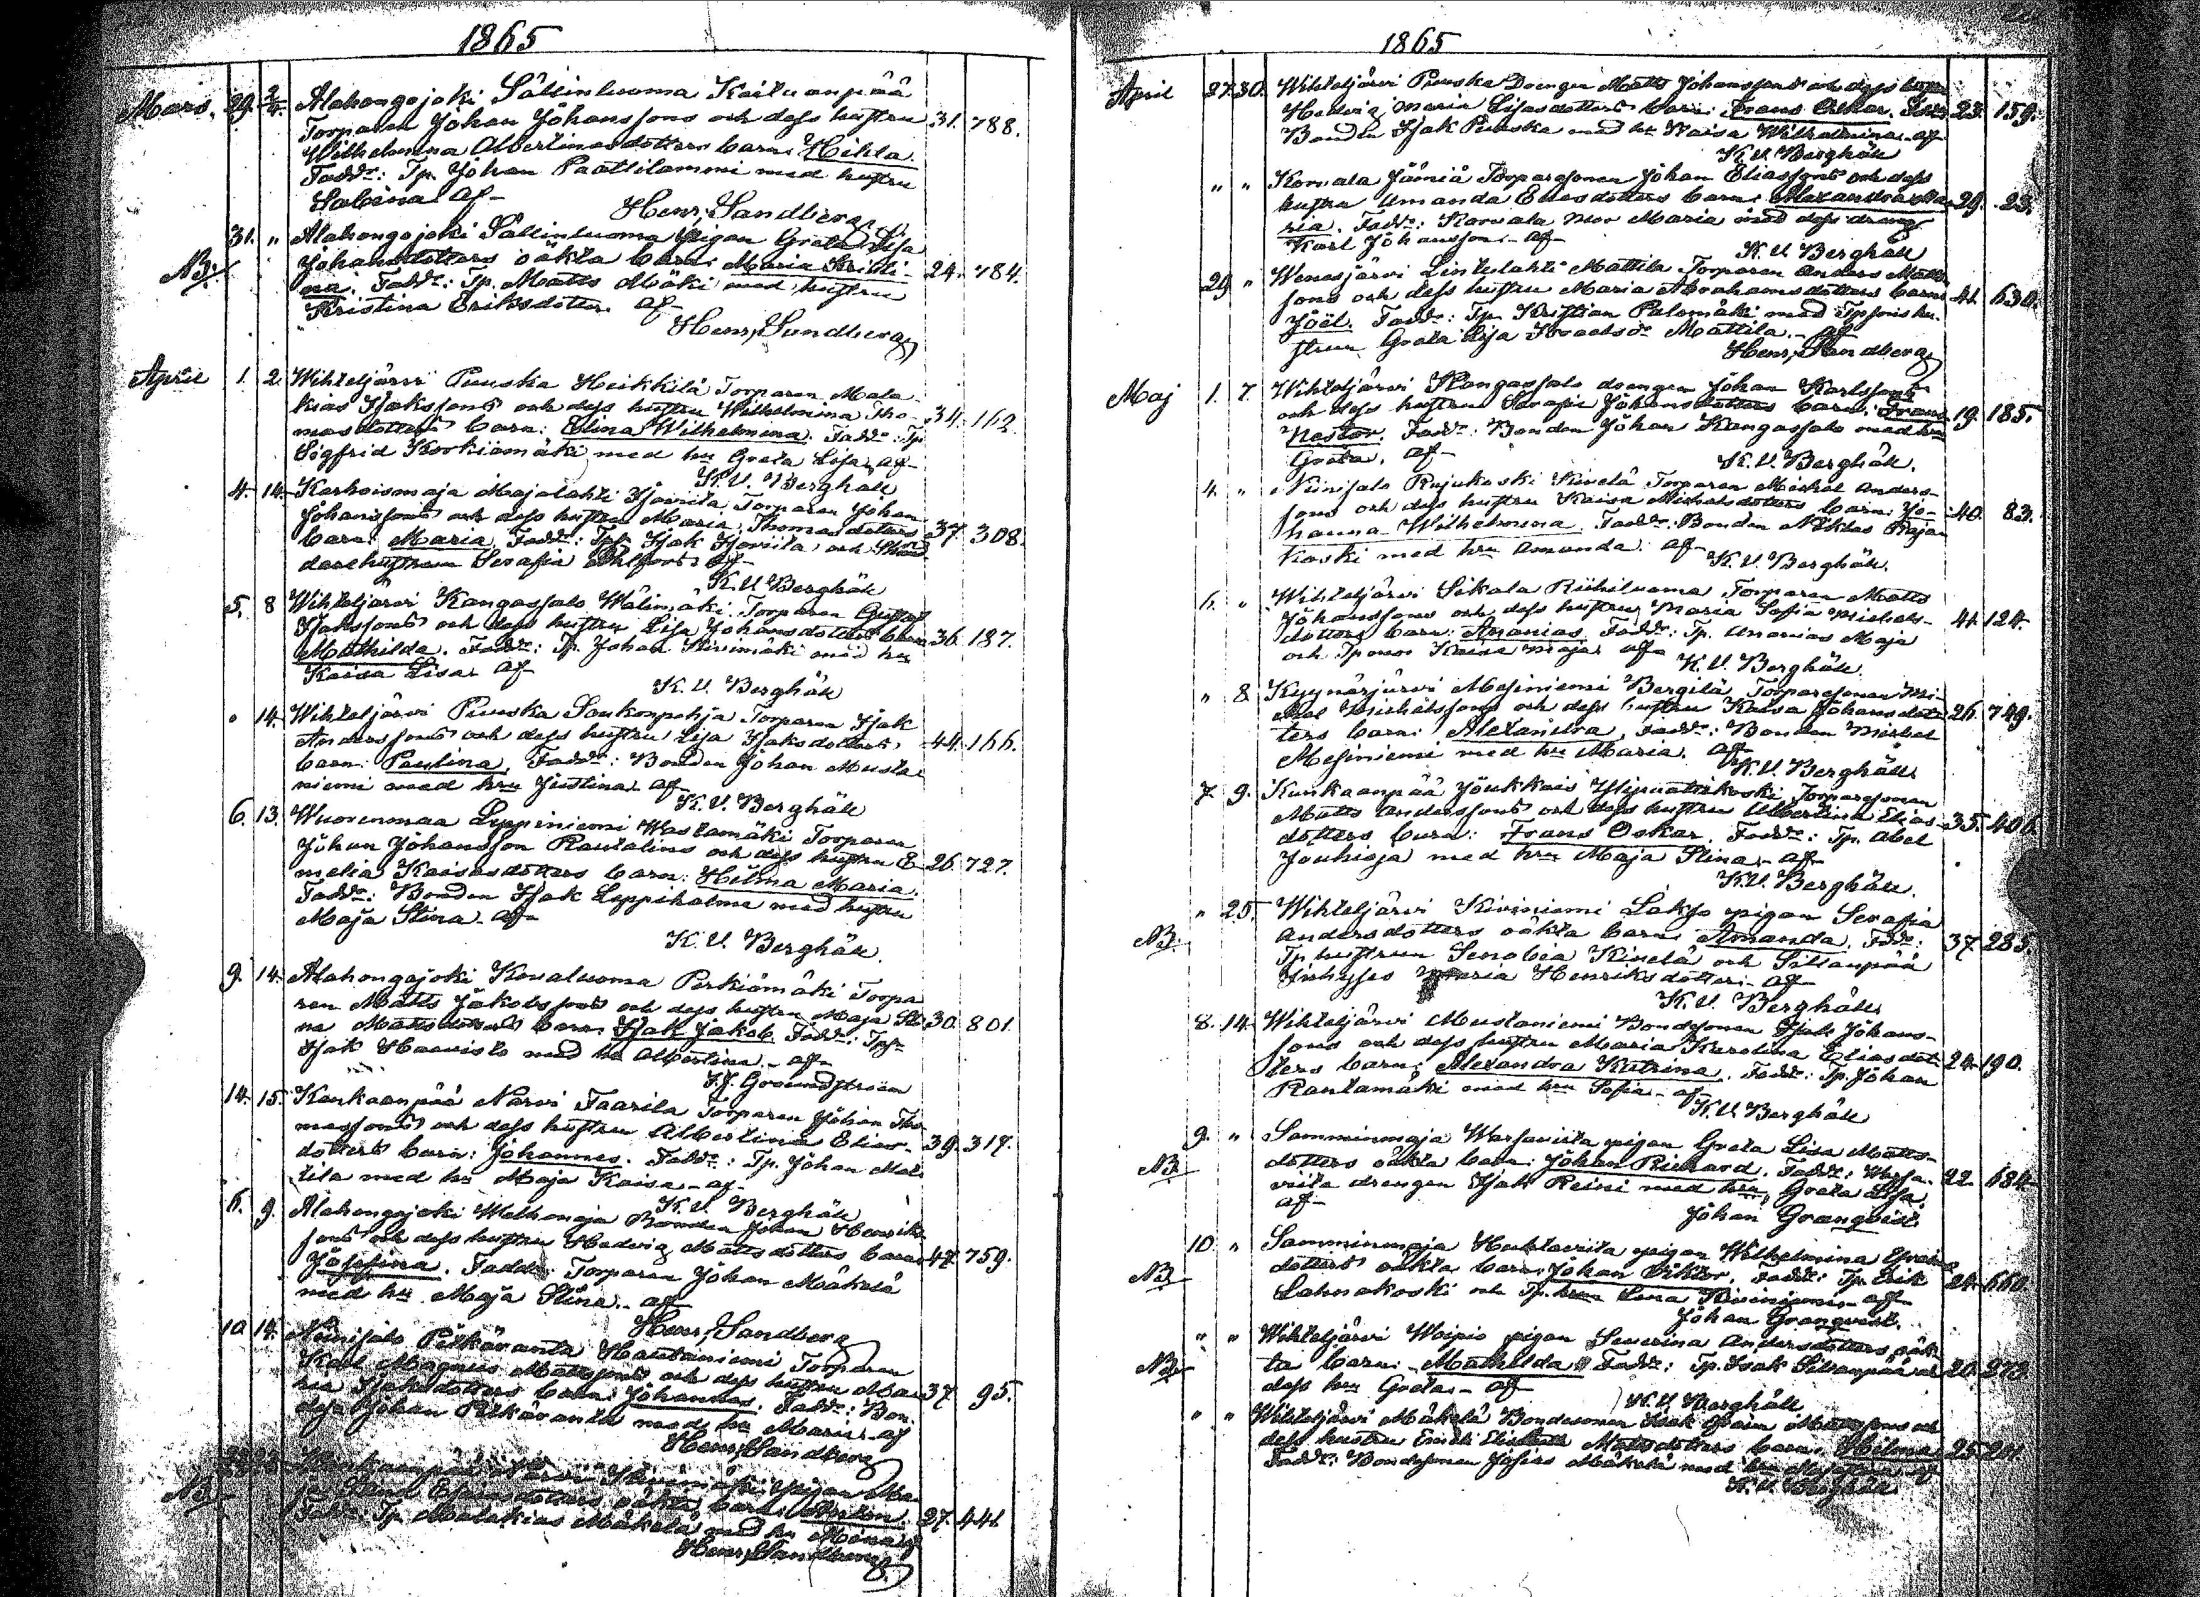 1865
Mars. 29. 2/4. Alahongojoki Sällinluoma Keituanpää
Torparen Johan Johanssons och dess hustru 31. 788.
Wilhelmina Albertinasdotters barn: Hilda.
Faddr: Tp. Johan Paattilammi med hustru
Sabina. Af-
Henr. Sandberg
31. " Alahongojoki Sällinluoma pigan Greta Lisa
NB. Johansdotters oäkta barn: Maria Kristi- 24. 784.
na. Faddr: Tp. Matts Mäki med hustru
Kristina Eriksdotter. Af
Henr. Sandberg
April 1. 2. Wihteljärvi Puuska Heikkilä Torparen Mala-
kias Isakssons och dess hustru Wilhelmina Tho- 34. 162.
masdotters barn: Elina Wilhelmina. Faddr: Tp.
Sigfrid Korkiamäki med hu Greta Lisa. af-
K. U. Berghäll
4. 14. Karhoismaja Majalahti Torparen Johan
Johanssons och dess hustru Maria Thomasdotters 37. 308.
barn: Maria. Faddr: Isak och
darehustrun Serafia af-
K. U. Berghäll
5. 8 Wihteljärvi Kangassalo Wälimäki Torparen Gustaf
Isakssons och dess hustru Lisa Johansdotters barn 36. 187.
Mathilda. Faddr: Tp. Johan med hu
Kaisa Lisa. Af-
K. U. Berghäll
" 14. Wihteljärvi Puuska Soukonpohja Torparen Isak
Anderssons och dess hustru Lisa Isaksdotters 44. 166.
barn: Paulina. Faddr: Bonden Johan Musta-
niemi med hru Justina. af-
K. U. Berghäll
6. 13. Wuorenmaa Leppiniemi Wastamäki Torparen
Johan Johansson Rautalins och dess hustru E- 26. 727.
melia Kaisasdotters barn: Hilma Maria.
Faddr: Bonden Isak Leppihalme med hustru
Maja Stina. af-
K. U. Berghäll.
9. 14. Alahongojoki Kovaluoma Porkiömäki Torpa-
ren Matts Jakobssons och dess hustru Maja Sti- 30. 801.
na Mattsdotters barn: Isak Jakob. Faddr: Tp.
Isak Haavisto med hu Albertina. af-
F. J. Groundstroem
14. 15. Kankaanpää Narvi Taarila Torparen Johan Tho-
massons och dess hustru Albertina Elias- 39. 317.
dotters barn: Johannes. Faddr: Tp. Johan Mat-
tila med hu Maja Kaisa. af-
K. U. Berghäll
6. 9. Alahongojoki Welhonoja Bonden Johan Henriks-
sons och dess hustru Hedvig Mattsdotters barn 47. 759.
Josefina. Faddr: Torparen Johan Mäkelä
med hu Maja Stina. af
Henr. Sandberg
10. 14. Niinisalo Pitkäranta Hautaniemi Torparen
Karl Magnus Mattssons och dess hustru Ma- 37. 95.
ria Isaksdotters barn: Johannes. Faddr: Bon-
den Johan Pitkäranta med hu Maria. af
Henr. Sandberg
Kankaanpää Narvi pigan Ma-
NB. ja Efraimsdotters oäkta barn: Anton. 27. 441.
Faddr: Tp. Malakias Mäkelä med hu Mina. af
Henr. Sandberg
1865
April 27. 30. Wihteljärvi Puuska Drengen Matts Johanssons och dess hustru
Hedvig Maria Lisasdotters barn: Frans Oskar. Faddr: 23. 159.
Bonden Isak Puuska med hu Kaisa Wilhelmina. af
K. U. Berghäll
" " Karvala Jämiä Torparesonen Johan Eliassons och dess
hustru Amanda Enosdotters barn: Alexandra Ma- 29. 23.
ria. Faddr: Karvala mor Maria med dess dreng
Karl Johansson. af-
K. U. Berghäll
29 " Wenesjärvi Lintulahti Mattila Torparen Anders Matts-
sons och dess hustru Maria Abrahamsdotters barn 41. 630.
Joël. Faddr: Tp. Kristian Palomäki med Tpsons hu-
strun Greta Lisa Israelsdr Mattila. af
Henr. Sandberg
Maj 1. 7. Wihteljärvi Kangassalo drengen Johan Karlssons
och dess hustru Serafia Johansdotters barn: Frans 19. 185.
Nestor. Faddr: Bonden Johan Kangassalo med hru
Greta. af-
K. U. Berghäll.
4. " Niinisalo Rajakoski Kivelä Torparen Mickel Anders-
sons och dess hustru Kaisa Michelsdotters barn: Jo- 40. 83.
hanna Wilhelmina. Faddr: Bonden Niklas Raja-
koski med hru Amanda. af-
K. U. Berghäll.
6. " Wihteljärvi Sikala Riihiluoma Torparen Matts
Johanssons och dess hustru Maria Sofia Michels- 41. 124.
dotters barn: Ananias. Faddr: Tp. Ananias Maja
och Tp mor Kaisa Maja. af-
K. U. Berghäll.
" 8 Kyynärjärvi Mesiniemi Bergilä Torparesonen Mi-
chel Michelssons och dess hustru Kaisa Johansdot- 26. 749.
ters barn: Alexandra. Faddr: Bonden Michel
Mesiniemi med hru Maria. af-
K. U. Berghäll
7. 9. Kankaanpää Torparesonen
Matts Anderssons och dess hustru Albertina Elias- 35. 406.
dotters barn: Frans Oskar. Faddr: Tp. Abel
Jouhioja med hru Maja Stina. af-
K. U. Berghäll.
" 25. Wihteljärvi Kiviniemi Lakso pigan Serafia
NB. Andersdotters oäkta barn: Amanda. Faddr: 37. 285.
Tp hustrun Senobia Kivelä och Sillanpää
Inhyses Maria Henriksdotter. af-
K. U. Berghäll
8. 14. Wihteljärvi Mustaniemi Bondesonen Isak Johans-
sons och dess hustru Maria Karolina Eliasdot- 24. 190.
ters barn: Alexandra Katrina. Faddr: Tp. Johan
Rantamäki med hru Sofia. af-
K. U. Berghäll
9. " Samminmaja Warsavista pigan Greta Lisa Matts-
NB dotters oäkta barn: Johan Rickard. Faddr: 22. 684.
drengen Isak Reini med hru Greta Lisa.
af-
Johan Granqvist.
10 " Samminmaja pigan Wilhelmina Efraims-
NB dotters oäkta barn: Johan Viktor. Faddr: Tp. Erik 24. 660.
Lahnakoski och Tp. hru Lena Kiviniemi. af-
Johan Granqvist.
" " Wihteljärvi Woipio pigan Severina Andersdotters oäk-
NB ta barn: Mathilda. Faddr: Tp. Isak Sillanpää och 20. 273.
dess hru Greta. af
K. U. Berghäll
" " Wihteljärvi Mäkelä Bondesonen Isak Mattssons och
dess hustru Mattsdotters barn: Hilma 25. 201
Faddr: Bondesonen Josefus Mäkelä med hru af
K. U. Berghäll